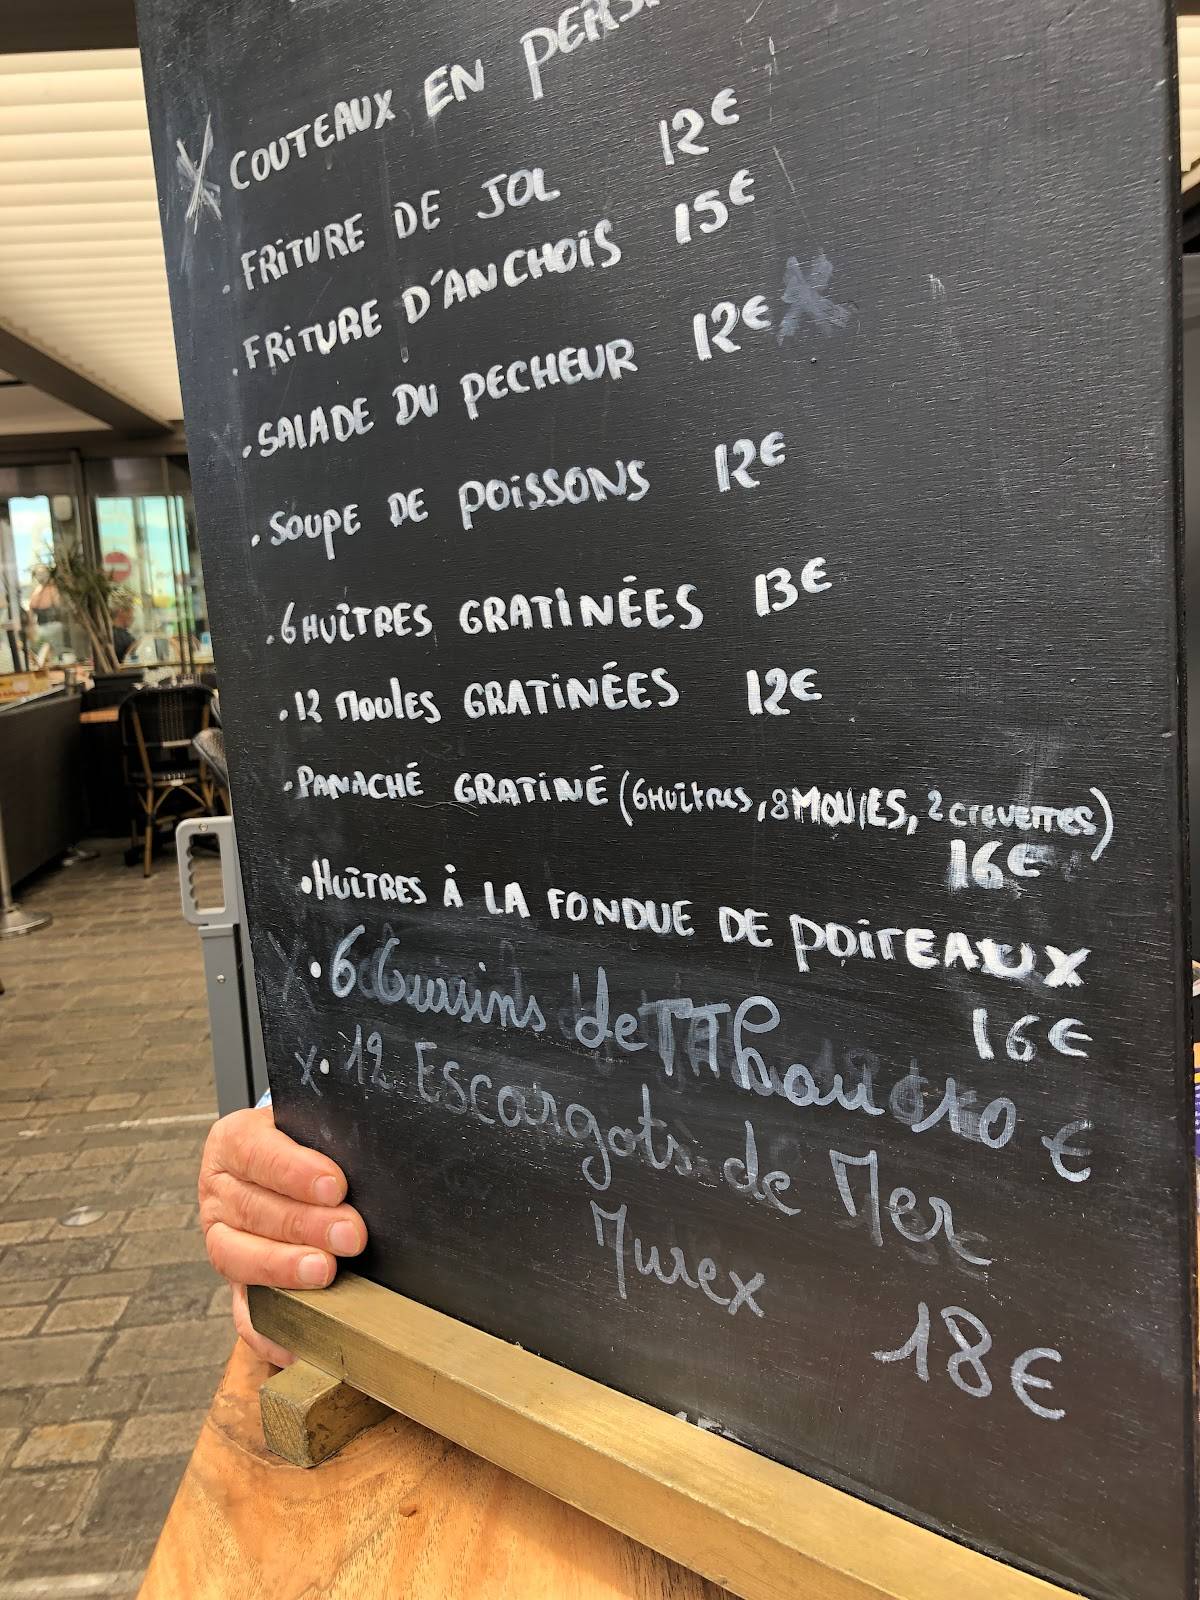 X COUTEAUX EN PERSI
. FRITURE DE JOL 12€
. FRITURE D'ANCHOIS 15€
. SALADE DU PECHEUR 12€
. SOUPE DE POISSONS 12€
. 6 HUÎTRES GRATINÉES 13€
. 12 MOULES GRATINÉES 12€
. PANACHÉ GRATINÉ (6 HUÎTRES, 8 MOULES, 2 CREVETTES)
16€
. HUÎTRES À LA FONDUE DE POIREAUX
16€
X . 6 Oursins de Thau 10 €
X . 12 Escargots de Mer
Murex 18€